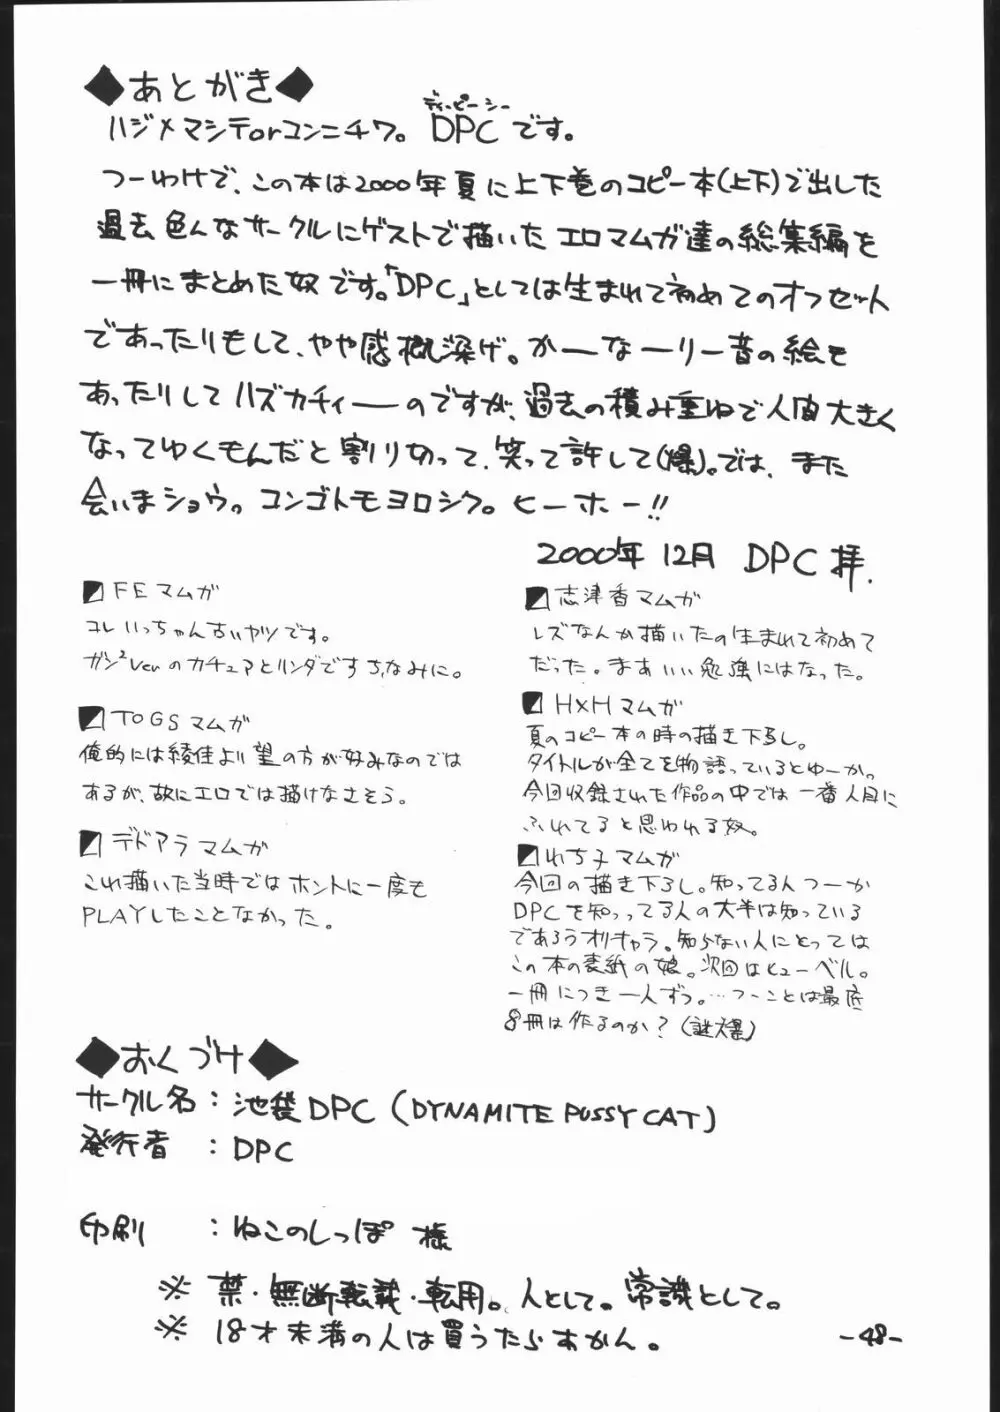 ◆あとがき◆
ハジメマシテorコンニチワ。DPCです。
ディーピーシー
つーわけで、この本は2000年夏に上下巻のコピー本(上下)で出した
過去色んなサークルにゲストで描いたエロマムガ達の総集編を
一冊にまとめた奴です。「DPC」としては生まれて初めてのオフセット
であったりもして、やや感慨深げ。かーなーりー昔の絵も
あったりしてハズカチィーのですが、過去の積み重ねで人間大きく
なってゆくもんだと割り切って、笑って許して(爆)。では、また
会いまショウ。コンゴトモヨロシク。ヒーホー!!
2000年12月 DPC拝.
FEマムガ
コレいっちゃん古いヤツです。
ガシ²Verのカチュアとリンダですちなみに。
TOGSマムガ
俺的には綾佳より望の方が好みなのでは
あるが、故にエロでは描けなさそう。
デドアラマムガ
これ描いた当時ではホントに一度も
PLAYしたことなかった。
志津香マムガ
レズなんか描いたの生まれて初めて
だった。まあいい勉強にはなった。
H×Hマムガ
夏のコピー本の時の描き下ろし。
タイトルが全てを物語っているとゆーか。
今回収録された作品の中では一番人目に
ふれてると思われる奴。
れち子マムガ
今回の描き下ろし。知ってる人つーか
DPCを知ってる人の大半は知っている
であろうオリキャラ。知らない人にとっては
この本の表紙の娘。次回はヒューベル。
一冊につき一人ずつ。…つーことは最底
8冊は作るのか?(謎爆)
◆おくづけ◆
サークル名:池袋DPC(DYNAMITE PUSSY CAT)
発行者:DPC
印刷:ねこのしっぽ 様
※禁・無断転載・転用。人として。常識として。
※18才未満の人は買うたらあかん。
-48-